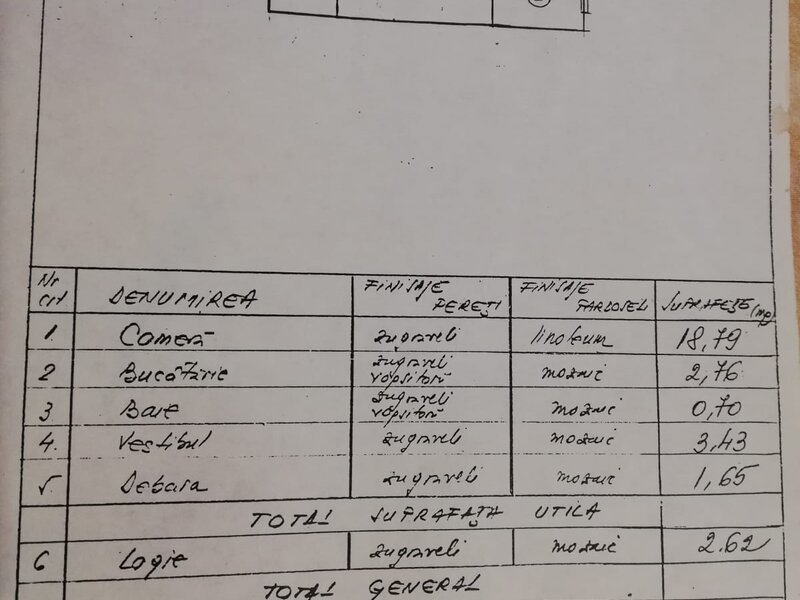 Nr crt DENUMIREA FINISAJE PEREȚI FINISAJE PARDOSELI SUPRAFEȚE (mp)
1. Cameră zugraveli linoleum 18,79
2 Bucătărie zugraveli vopsitorii mozaic 2,76
3 Baie zugraveli vopsitorii mozaic 0,70
4. Vestibul zugraveli mozaic 3,43
5. Debara zugraveli mozaic 1,65
TOTAL SUPRAFAȚA UTILA
6 Logie zugraveli mozaic 2.62
TOTAL GENERAL